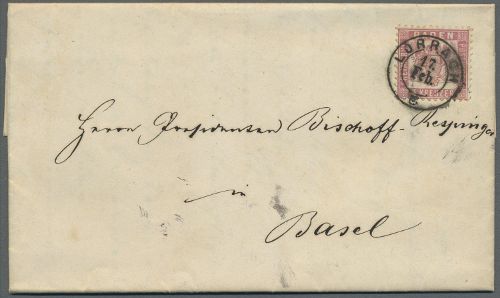 BADEN
LÖRRACH
12
Feb.
KREUZER
Herrn Præsidenten Bischoff-Respinger
in
Basel